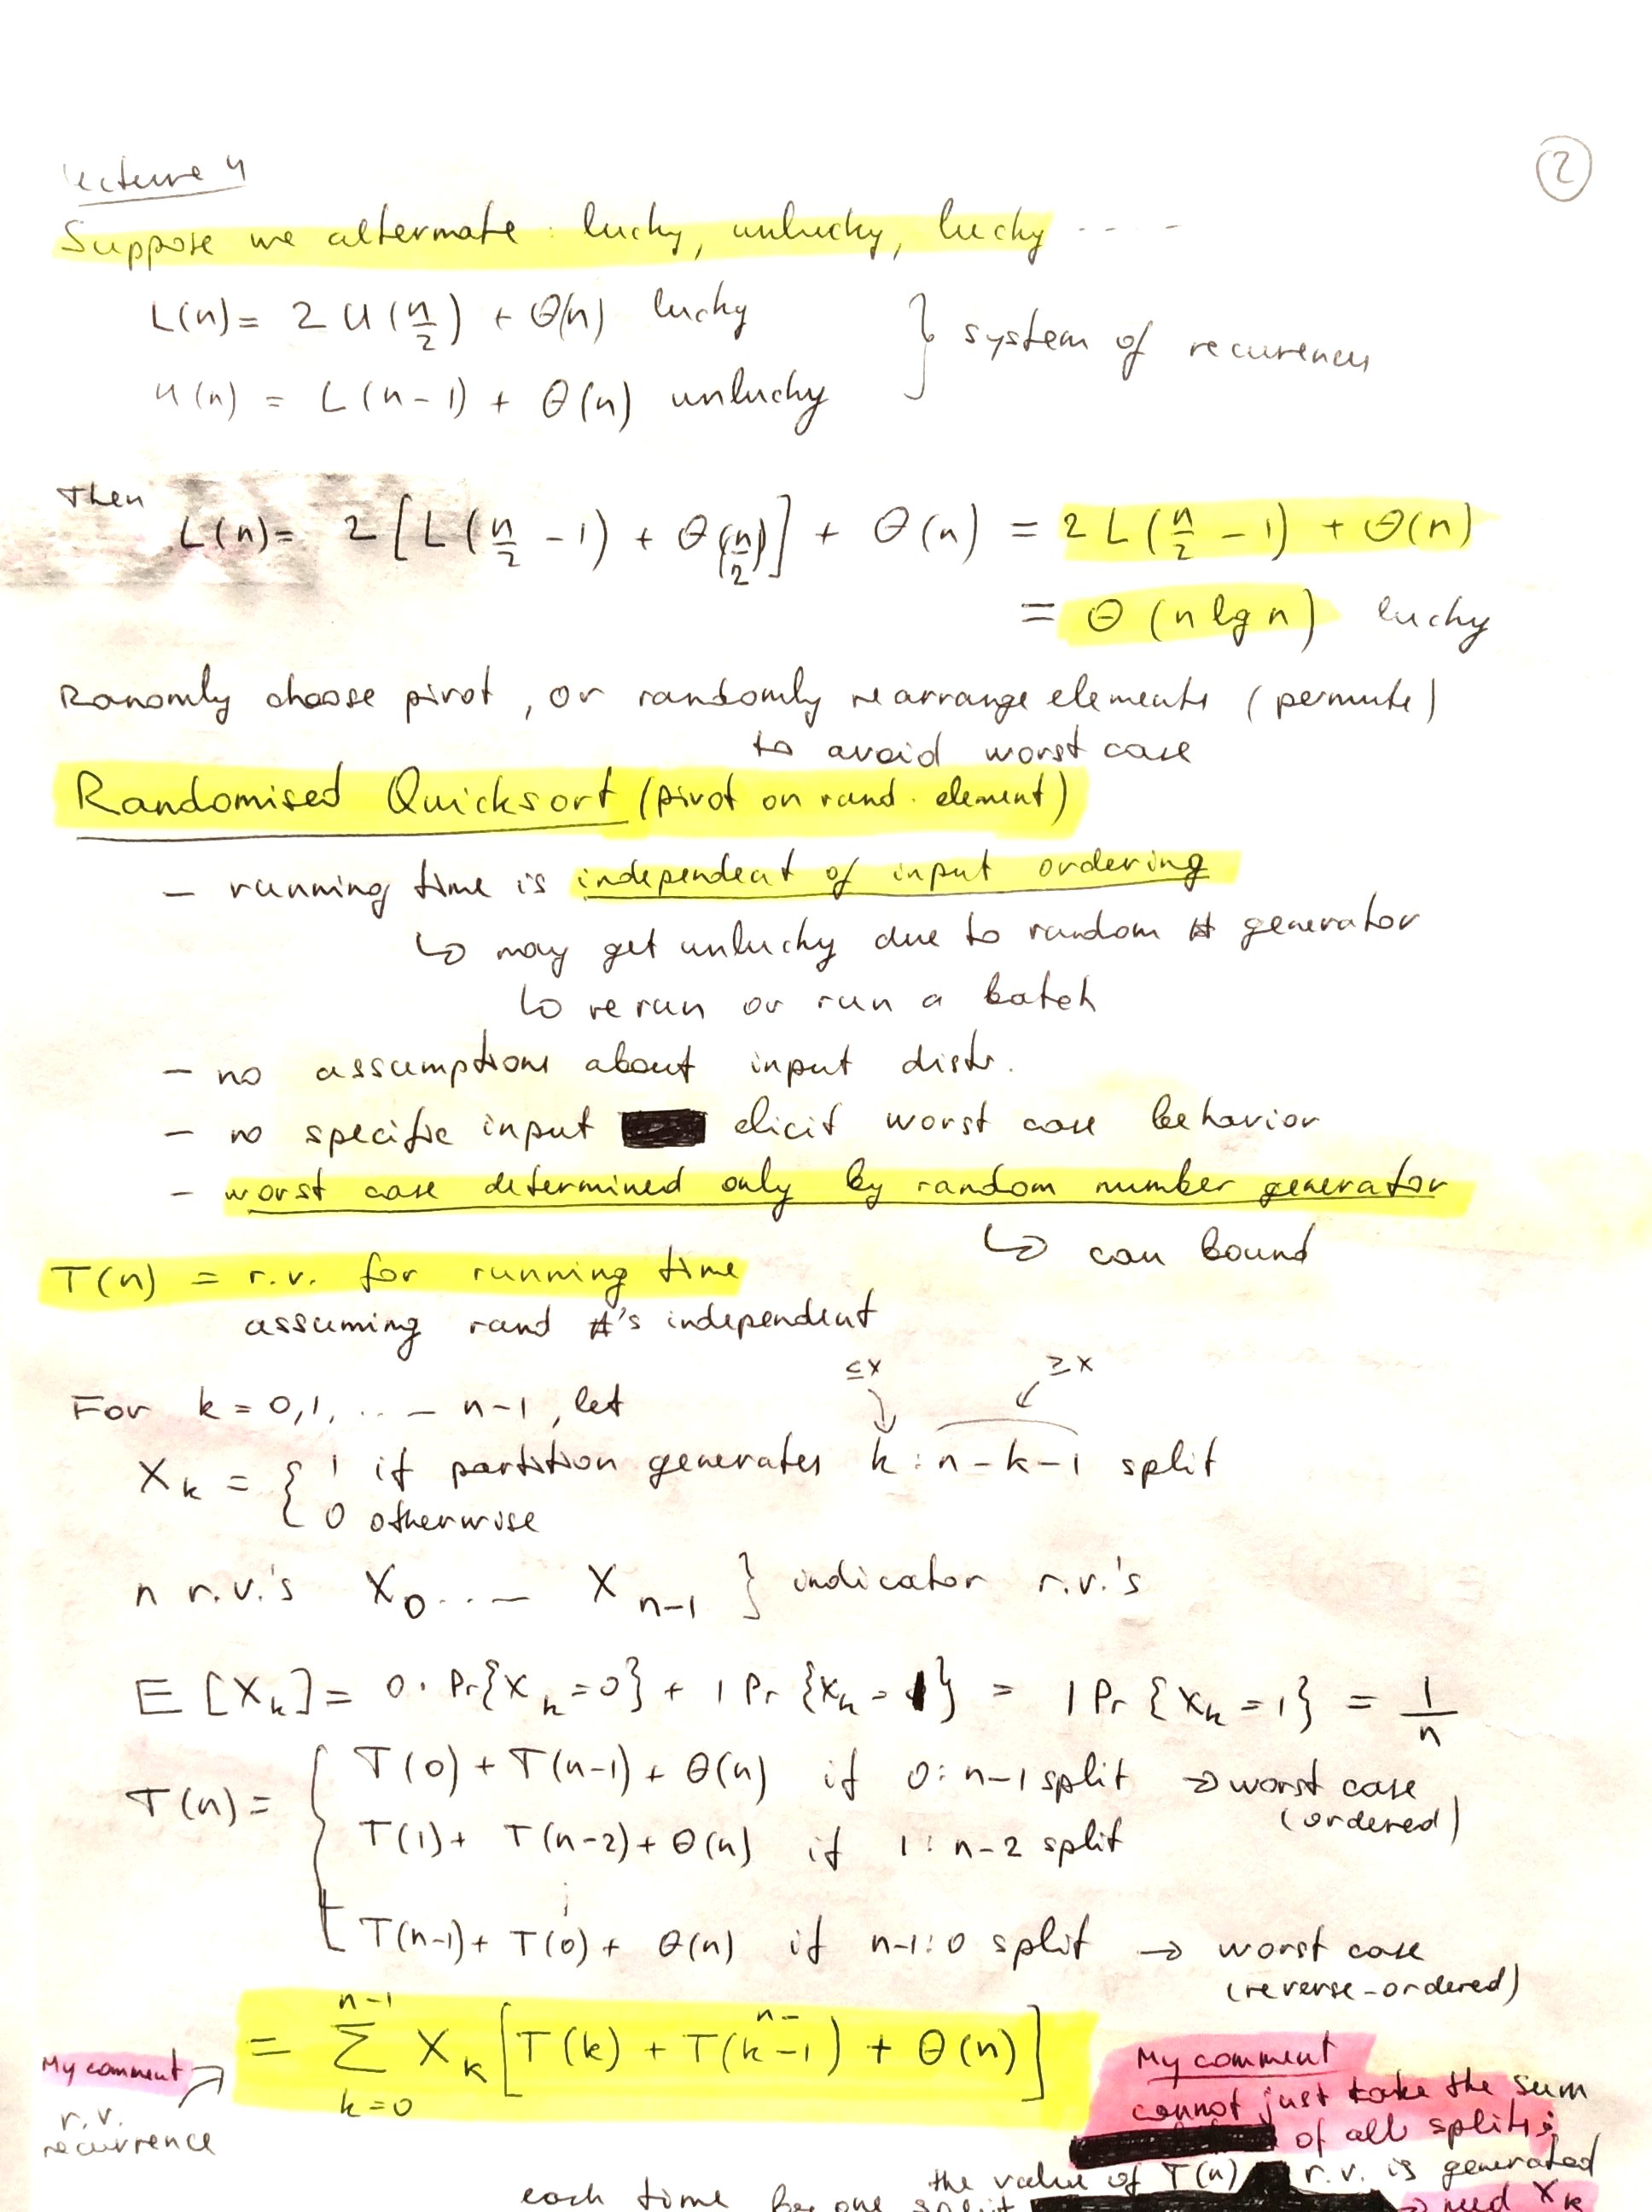 Lecture 4
2
Suppose we alternate: lucky, unlucky, lucky ....
L(n) = 2 U(n/2) + Θ(n) lucky
U(n) = L(n-1) + Θ(n) unlucky
} system of recurences
Then
L(n) = 2 [L(n/2 - 1) + Θ(n/2)] + Θ(n) = 2 L(n/2 - 1) + Θ(n)
= Θ(n lg n) lucky
Ranomly choose pivot, or randomly rearrange elements (permute)
to avoid worst case
Randomised Quicksort (pivot on rand. element)
- running time is independent of input ordering
↳ may get unlucky due to random # generator
↳ rerun or run a batch
- no assumptions about input distr.
- no specific input elicit worst case behavior
- worst case determined only by random number generator
↳ can bound
T(n) = r.v. for running time
assuming rand #'s independent
≤x ≥x
For k = 0,1, ... n-1, let
X_k = { 1 if partition generates k : n-k-1 split
0 otherwise
n r.v.'s X_0 ... X_n-1 } indicator r.v.'s
E[X_k] = 0 · Pr{X_k = 0} + 1 Pr{X_k = 1} = 1 Pr{X_k = 1} = 1/n
T(n) = { T(0) + T(n-1) + Θ(n) if 0 : n-1 split → worst case
(ordered)
T(1) + T(n-2) + Θ(n) if 1 : n-2 split
⋮
T(n-1) + T(0) + Θ(n) if n-1 : 0 split → worst case
(reverse-ordered)
= Σ_{k=0}^{n-1} X_k [T(k) + T(n-k-1) + Θ(n)]
My comment
r.v.
recurrence
My comment
cannot just take the sum
of all splits;
the value of T(n) r.v. is generated
each time for one split → need X_k